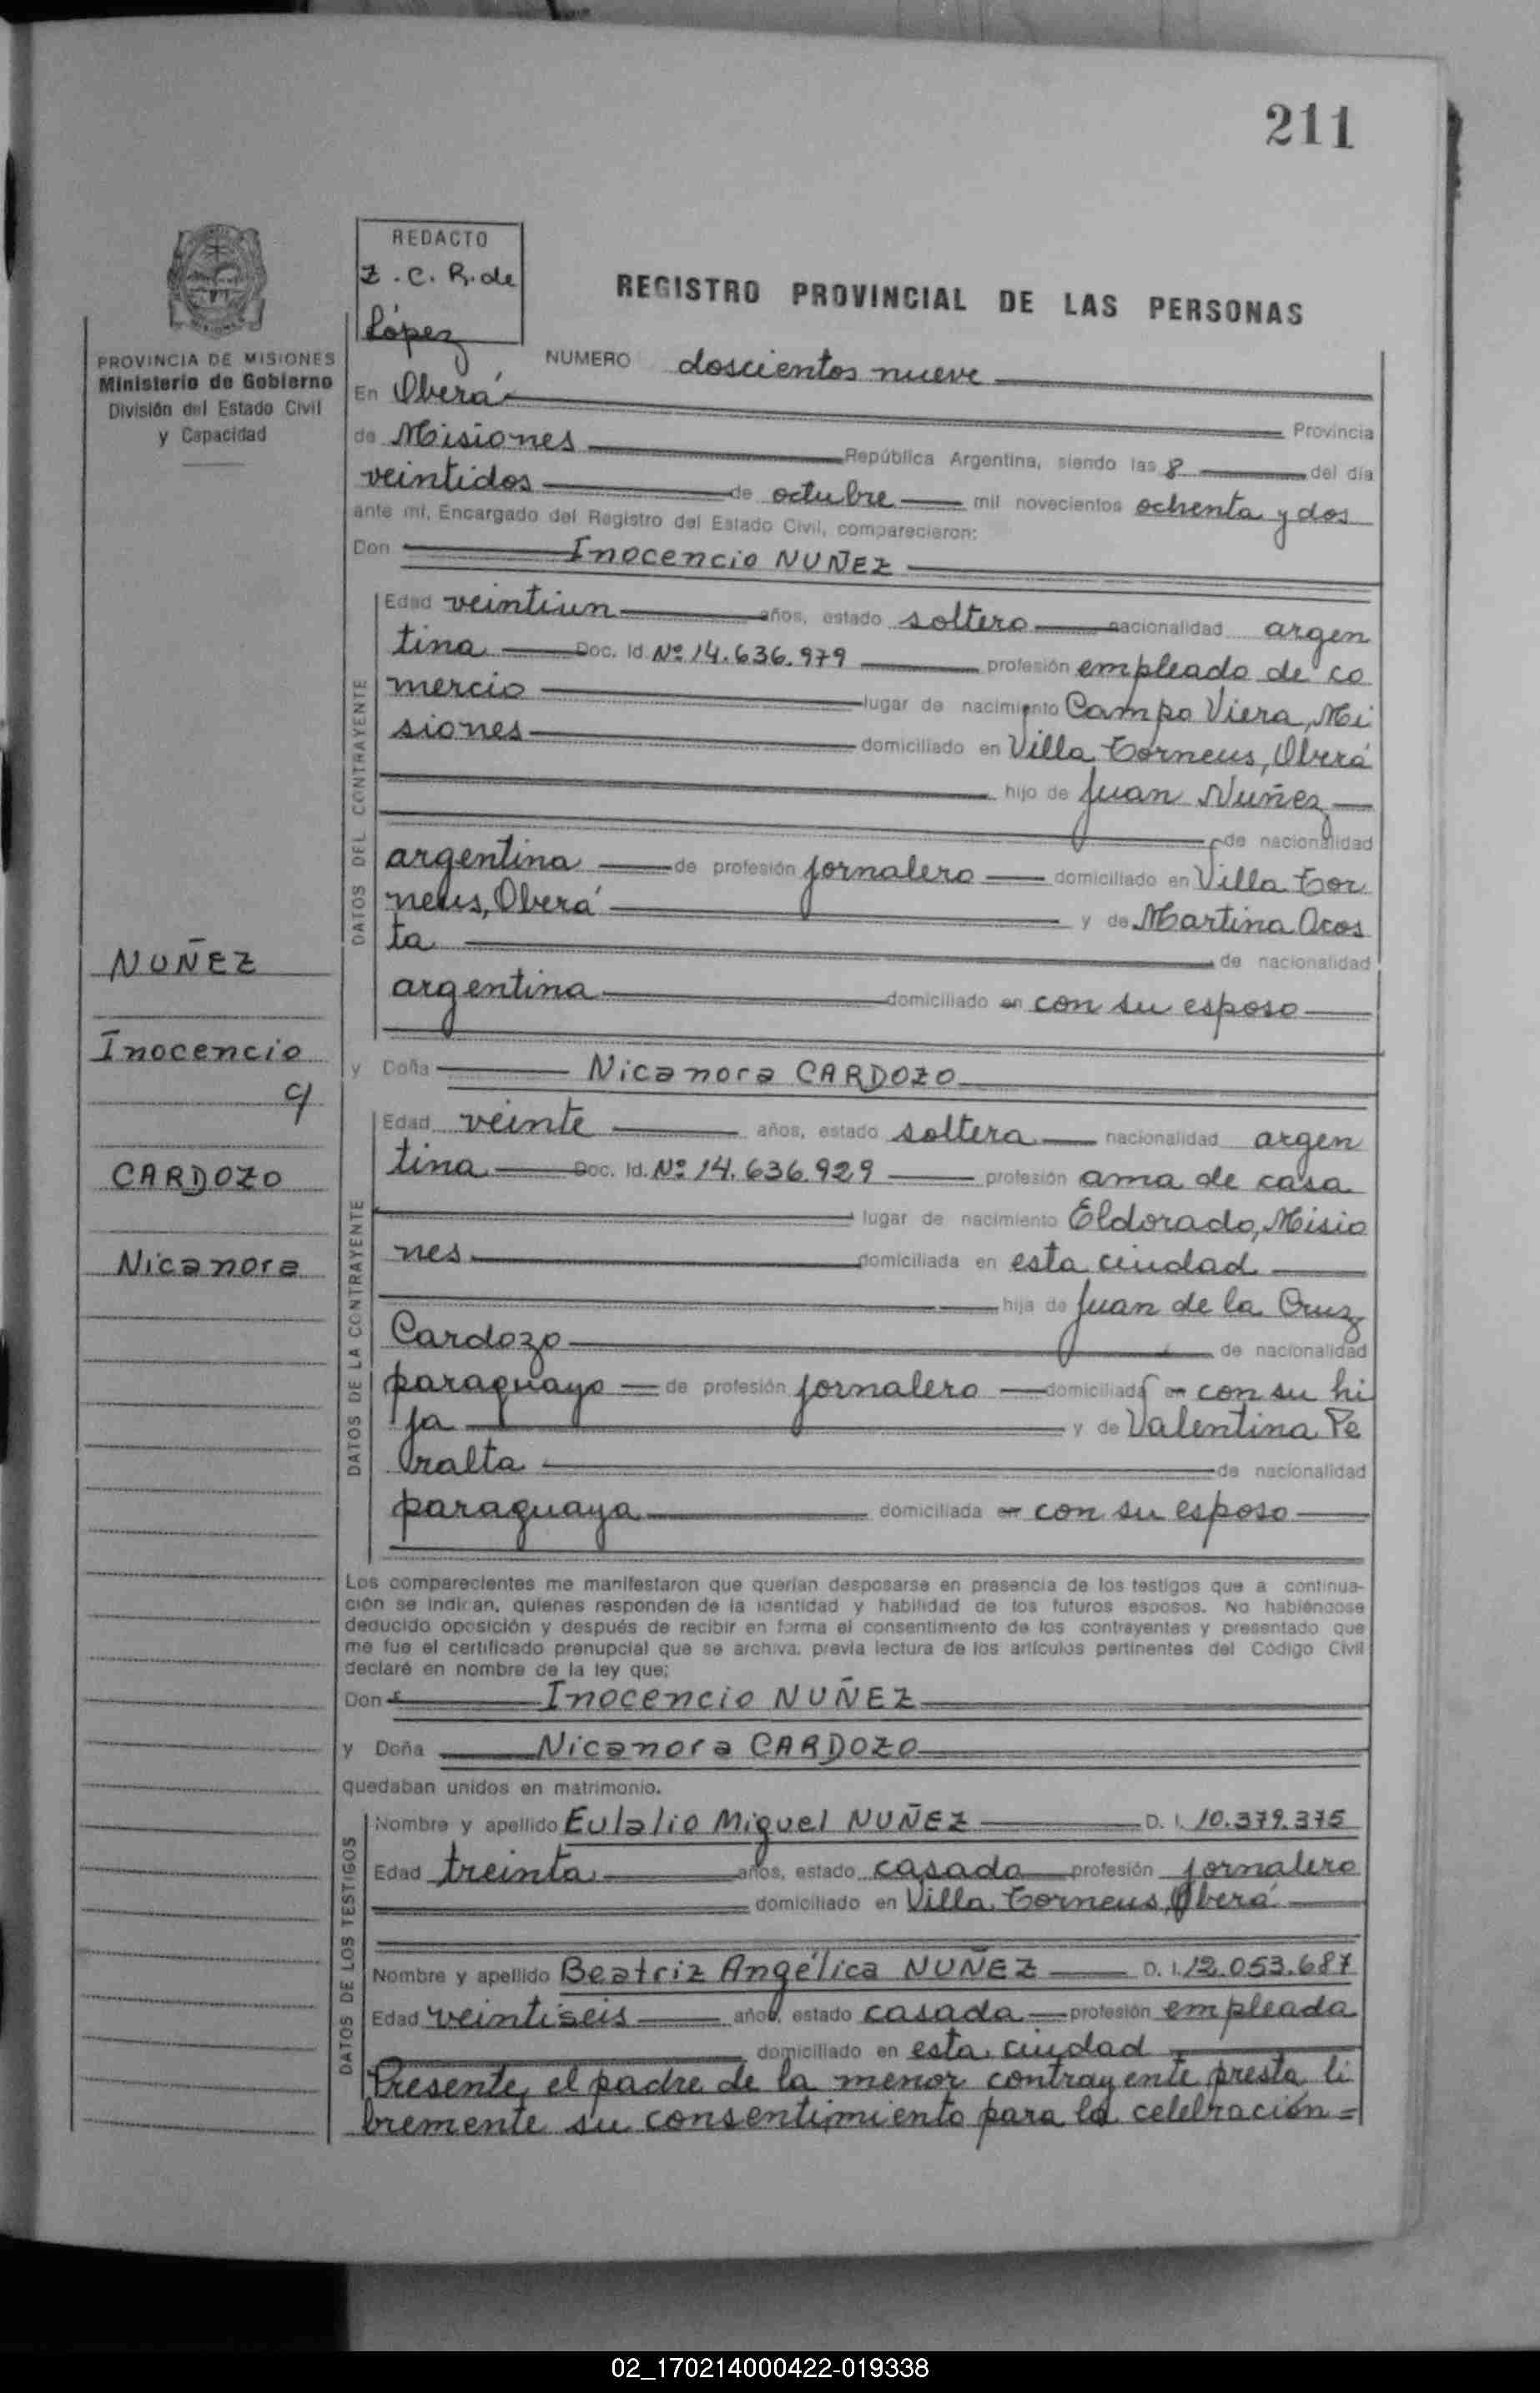 211
REDACTO
Z. C. R. de
López
REGISTRO PROVINCIAL DE LAS PERSONAS
PROVINCIA DE MISIONES
Ministerio de Gobierno
División del Estado Civil
y Capacidad
NUMERO doscientos nueve
En Oberá
Provincia
de Misiones República Argentina, siendo las 8 del día
veintidos de octubre mil novecientos ochenta y dos
ante mí, Encargado del Registro del Estado Civil, comparecieron:
Don Inocencio NUÑEZ
DATOS DEL CONTRAYENTE
Edad veintiun años, estado soltero nacionalidad argen
tina Doc. Id. Nº 14.636.979 profesión empleado de co
mercio lugar de nacimiento Campo Viera, Mi
siones domiciliado en Villa Torneus, Oberá
hijo de Juan Nuñez
de nacionalidad
argentina de profesión jornalero domiciliado en Villa Tor
neus, Oberá y de Martina Acos
ta de nacionalidad
argentina domiciliado en con su esposo
NUÑEZ
Inocencio
y
CARDOZO
Nicanora
y Doña Nicanora CARDOZO
DATOS DE LA CONTRAYENTE
Edad veinte años, estado soltera nacionalidad argen
tina Doc. Id. Nº 14.636.929 profesión ama de casa
lugar de nacimiento Eldorado, Misio
nes domiciliada en esta ciudad
hija de Juan de la Cruz
Cardozo de nacionalidad
paraguayo de profesión jornalero domiciliada en con su hi
ja y de Valentina Pe
ralta de nacionalidad
paraguaya domiciliada en con su esposo
Los comparecientes me manifestaron que querían desposarse en presencia de los testigos que a continua-
ción se indican, quienes responden de la identidad y habilidad de los futuros esposos. No habiéndose
deducido oposición y después de recibir en forma el consentimiento de los contrayentes y presentado que
me fue el certificado prenupcial que se archiva, previa lectura de los artículos pertinentes del Código Civil
declaré en nombre de la ley que;
Don Inocencio NUÑEZ
y Doña Nicanora CARDOZO
quedaban unidos en matrimonio.
DATOS DE LOS TESTIGOS
Nombre y apellido Eulalio Miguel NUÑEZ D. I. 10.379.375
Edad treinta años, estado casado profesión jornalero
domiciliado en Villa Torneus, Oberá
Nombre y apellido Beatriz Angélica NUÑEZ D. I. 12.053.687
Edad veintiseis años, estado casada profesión empleada
domiciliado en esta ciudad
Presente, el padre de la menor contrayente presta li
bremente su consentimiento para la celebración=
02_170214000422-019338